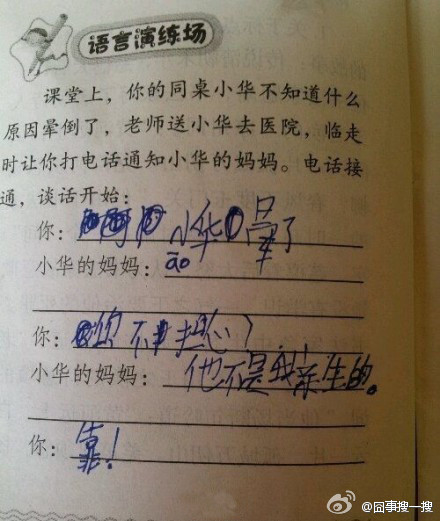 语言演练场
课堂上，你的同桌小华不知道什么
原因晕倒了，老师送小华去医院，临走
时让你打电话通知小华的妈妈。电话接
通，谈话开始：
你：小华晕了
小华的妈妈：āo
你：你不担心？
小华的妈妈：他不是我亲生的。
你：靠！
@囧事搜一搜